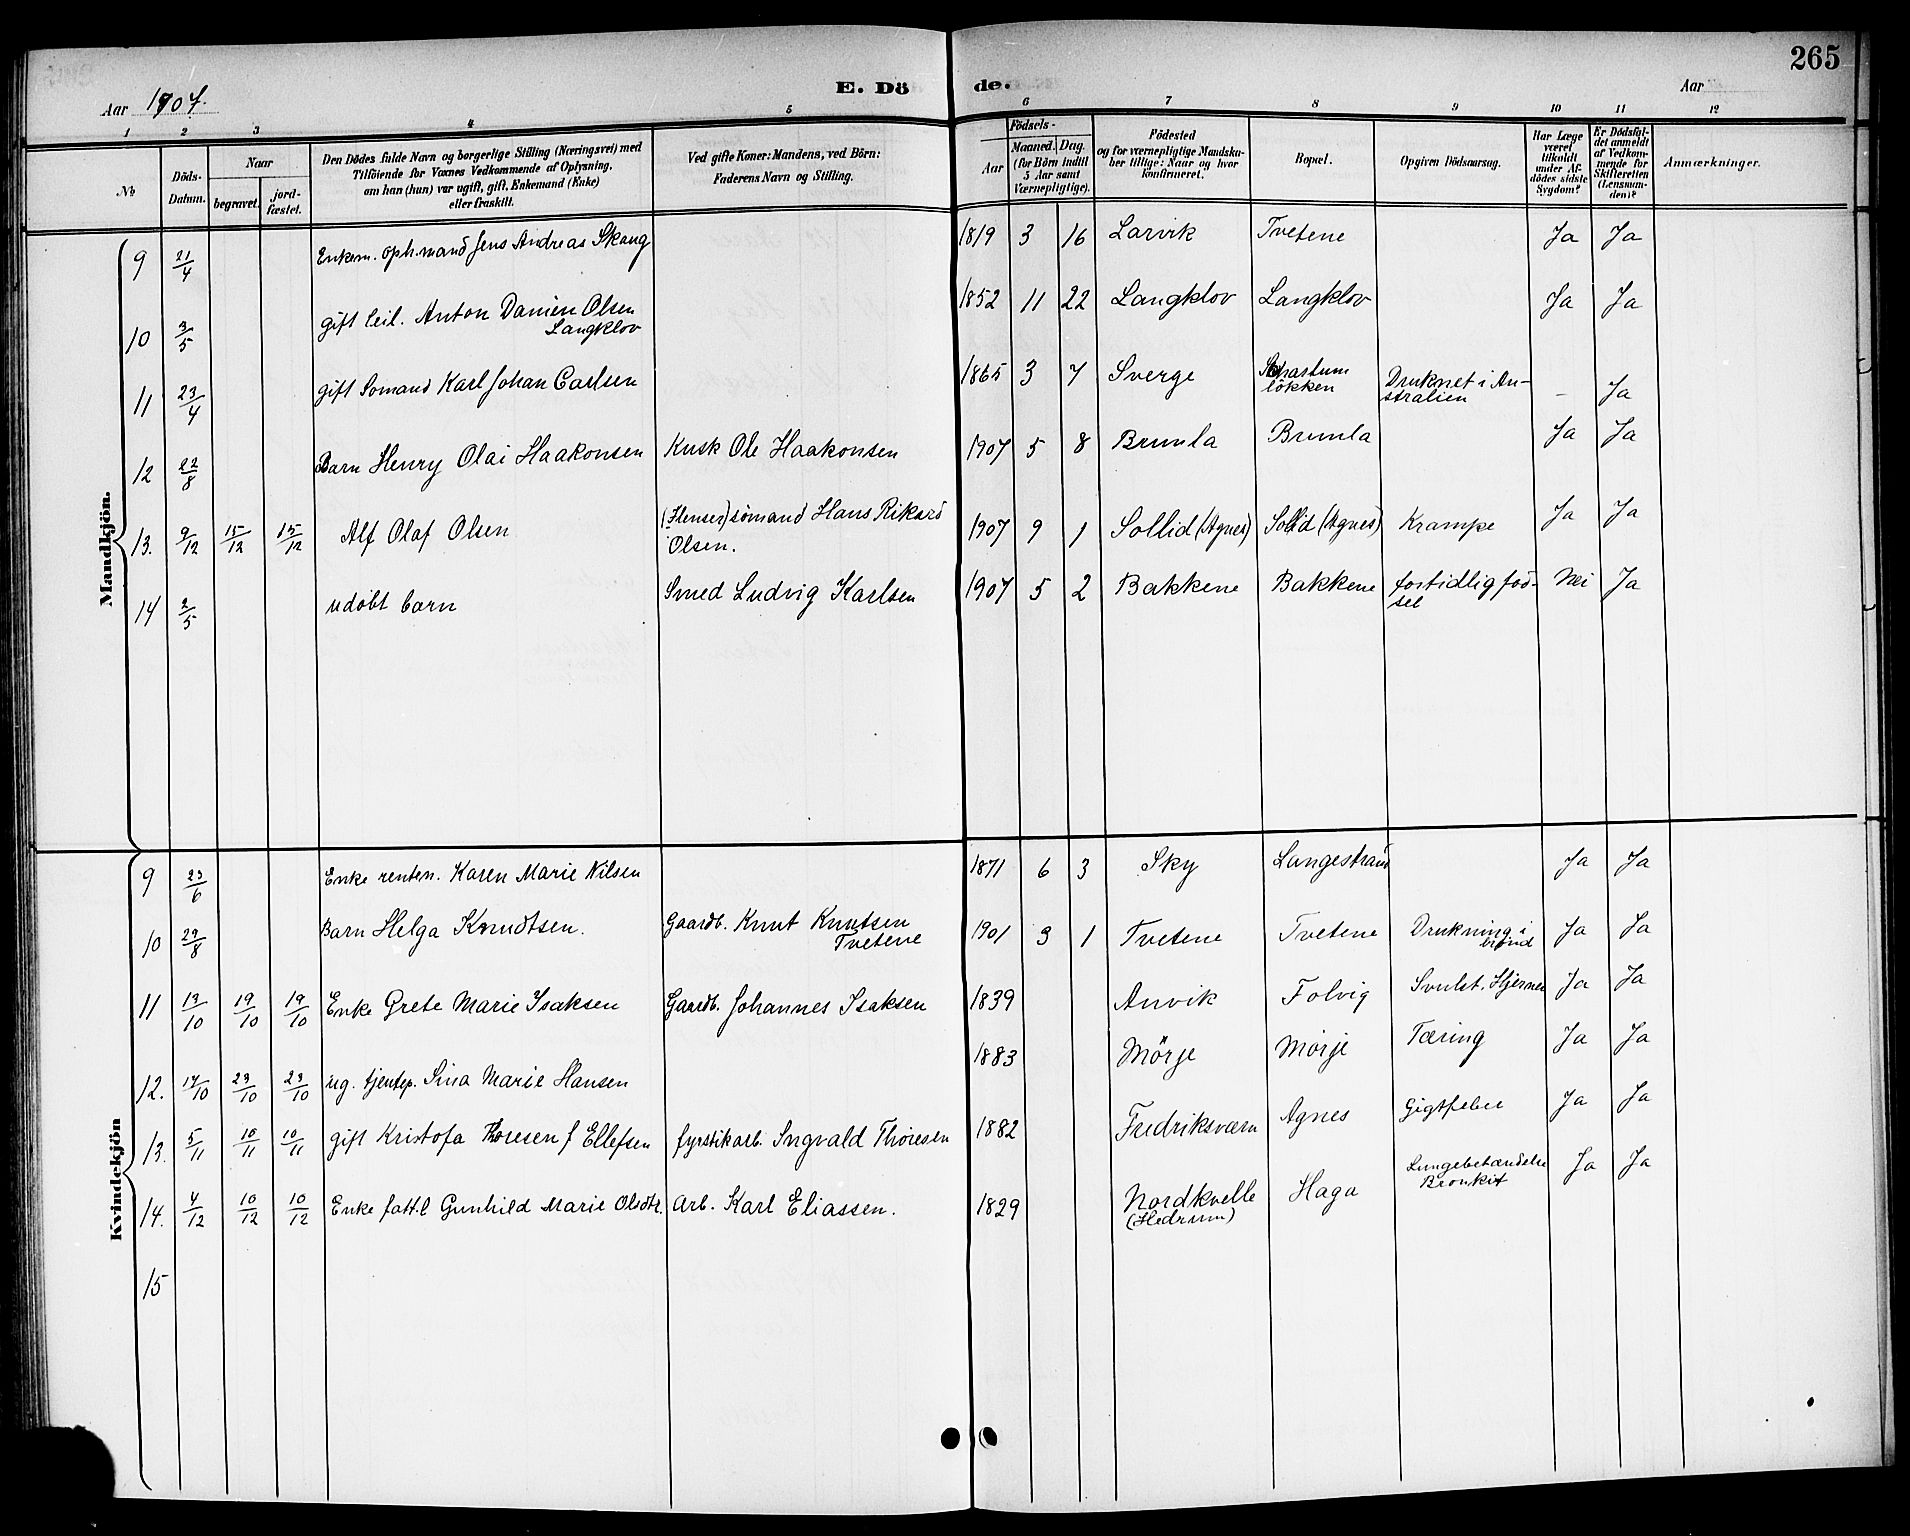 265
E. Döde.
Aar 1907.
Aar
1 2 3 4 5 6 7 8 9 10 11 12
No
Döds-Datum.
Naar
begravet.
jordfæstet.
Den Dödes fulde Navn og borgerlige Stilling (Næringsvei) med
Tilföiende for Voxnes Vedkommende af Oplysning,
om han (hun) var ugift, gift, Enkemand (Enke)
eller fraskilt.
Ved gifte Koner: Mandens, ved Börn:
Faderens Navn og Stilling.
Födsels-
Aar
Maaned. Dag.
(for Börn indtil
5 Aar samt
Værnepligtige).
Födested
og for værnepligtige Mandska-
ber tillige: Naar og hvor
konfirmeret.
Bopæl.
Opgiven Dödsaarsag.
Har Læge
været
tilkaldt
under Af-
dödes sidste
Sygdom?
Er Dödsfal-
det anmeldt
af Vedkom-
mende for
Skifteretten
(Lensman-
den)?
Anmærkninger.
Mandkjön.
9 21/4 Enkem. oph.mand Jens Andreas Skaug 1819 3 16 Larvik Tvetene Ja Ja
10 3/5 gift leil. Anton Danien Olsen 1852 11 22 Langklov Langklov Ja Ja
Langklov
11 23/4 gift Sømand Karl Johan Carlsen 1865 3 7 Sverge løkken Druknet i Au-
stralien - Ja
12 22/8 Barn Henry Olai Haakonsen Kusk Ole Haakonsen 1907 5 8 Brunla Brunla Ja Ja
13. 9/12 15/12 15/12 Alf Olaf Olsen sømand Hans Rikard 1907 9 1 Sollid (Agnes) Sollid (Agnes) Krampe Ja Ja
Olsen.
14 2/5 udøbt barn Smed Ludvig Karlsen 1907 5 2 Bakkene Bakkene fortidlig fød-
sel Nei Ja
Kvindekjön
9 23/6 Enke renten. Karen Marie Nilsen 1871 6 3 Sky Langestrand Ja Ja
10 29/8 Barn Helga Knudtsen. Gaardb. Knut Knutsen 1901 3 1 Tvetene Tvetene Drukning i Ja Ja
Tvetene brønd
11 13/10 19/10 19/10 Enke Grete Marie Isaksen Gaardb. Johannes Isaksen 1839 Anvik Folvig Svulst. Hjernen Ja Ja
12. 17/10 23/10 23/10 ug. tjentep. Sina Marie Hansen 1883 Mørje Mørje Tæring Ja Ja
13. 5/11 10/11 10/11 gift Kristofa Thoresen f Ellefsen fyrstikarb. Ingvald Thoresen 1882 Fredriksværn Agnes Gigtfeber Ja Ja
14. 4/12 10/12 10/12 Enke fatt.l Gunhild Marie Olsdt. Arb. Karl Eliassen. 1829 Nordkvelle Haga Lungebetændelse Ja Ja
(Hedrum) Bronkit
15